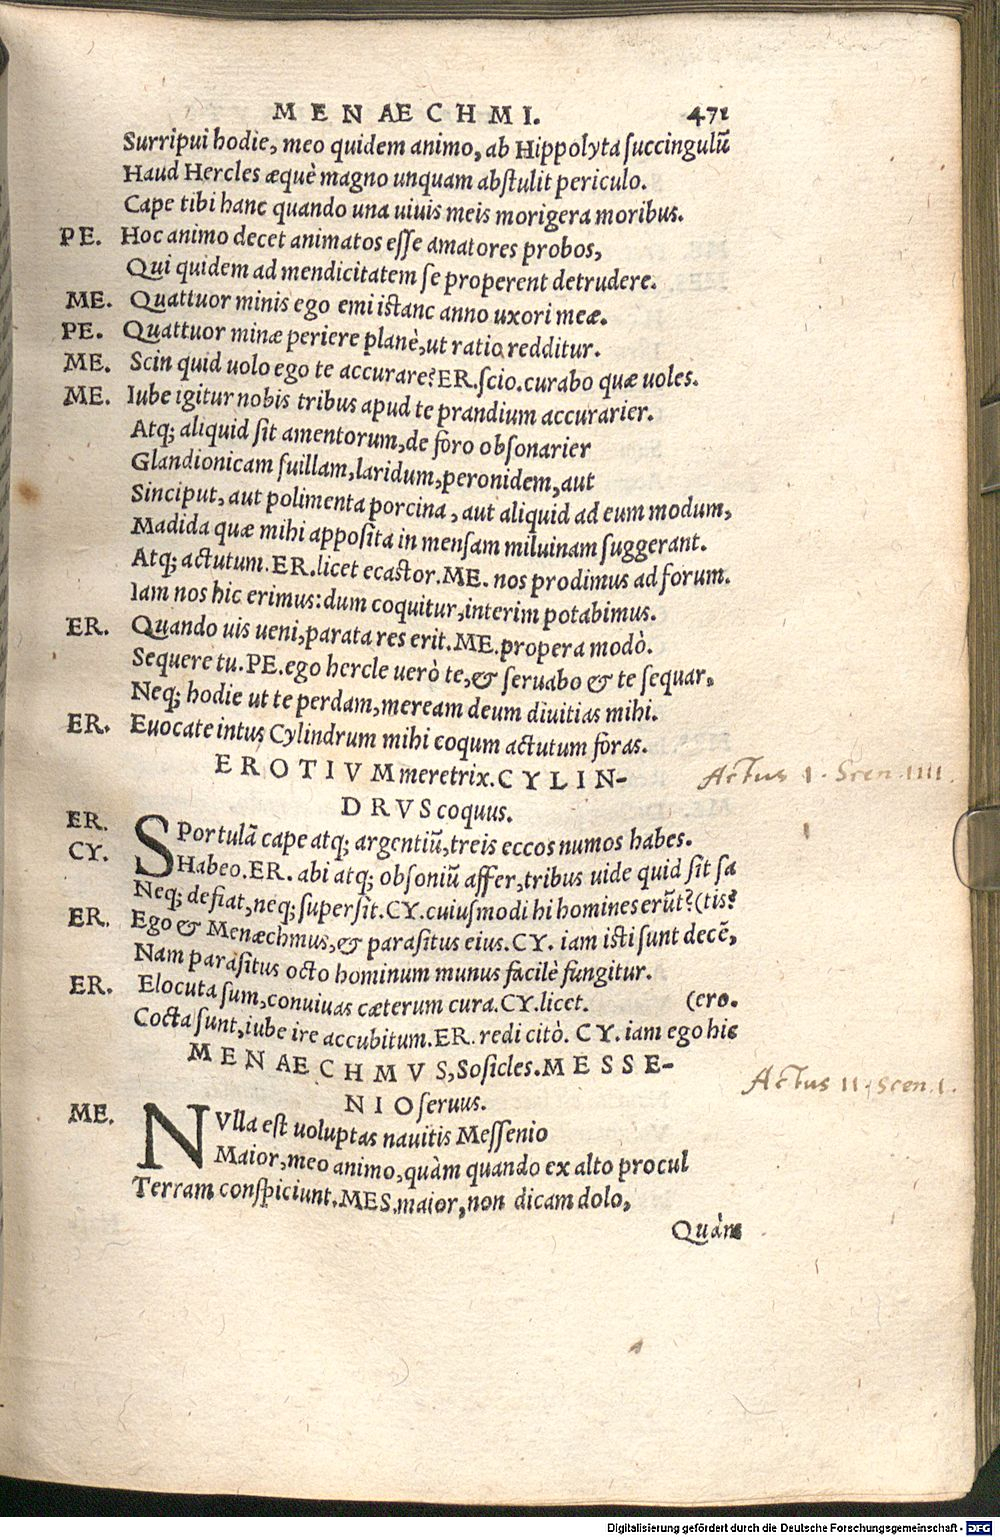 MENAECHMI. 471
Surripui hodie, meo quidem animo, ab Hippolyta succingulū
Haud Hercles æquè magno unquam abstulit periculo.
Cape tibi hanc quando una uiuis meis morigera moribus.
PE. Hoc animo decet animatos esse amatores probos,
Qui quidem ad mendicitatem se properent detrudere.
ME. Quattuor minis ego emi istanc anno uxori meæ.
PE. Quattuor minæ periere planè, ut ratio redditur.
ME. Scin quid uolo ego te accurare? ER. scio. curabo quæ uoles.
ME. Iube igitur nobis tribus apud te prandium accurarier.
Atq; aliquid sit amentorum, de foro obsonarier
Glandionicam suillam, laridum, peronidem, aut
Sinciput, aut polimenta porcina, aut aliquid ad eum modum,
Madida quæ mihi apposita in mensam miluinam suggerant.
Atq; actutum. ER. licet ecastor. ME. nos prodimus ad forum.
Iam nos hic erimus: dum coquitur, interim potabimus.
ER. Quando uis ueni, parata res erit. ME. propera modò.
Sequere tu. PE. ego hercle uerò te, & seruabo & te sequar,
Neq; hodie ut te perdam, meream deum diuitias mihi.
ER. Euocate intus Cylindrum mihi coqum actutum foras.
EROTIVM meretrix. CYLIN-
Actus I. Scen. IIII.
DRVS coquus.
ER. SPortulā cape atq; argentiū, treis eccos numos habes.
CY. Habeo. ER. abi atq; obsoniū affer, tribus uide quid sit sa
Neq; defiat, neq; supersit. CY. cuiusmodi hi homines erūt? (tis?
ER. Ego & Menæchmus, & parasitus eius. CY. iam isti sunt decē,
Nam parasitus octo hominum munus facilè fungitur.
ER. Elocuta sum, conuiuas cæterum cura. CY. licet. (ero.
Cocta sunt, iube ire accubitum. ER. redi citò. CY. iam ego hic
MENAECHMVS, Sosicles. MESSE-
Actus II. Scen. I.
NIO seruus.
ME. NVlla est uoluptas nauitis Messenio
Maior, meo animo, quàm quando ex alto procul
Terram conspiciunt. MES. maior, non dicam dolo,
Quàm
Digitalisierung gefördert durch die Deutsche Forschungsgemeinschaft - DFG